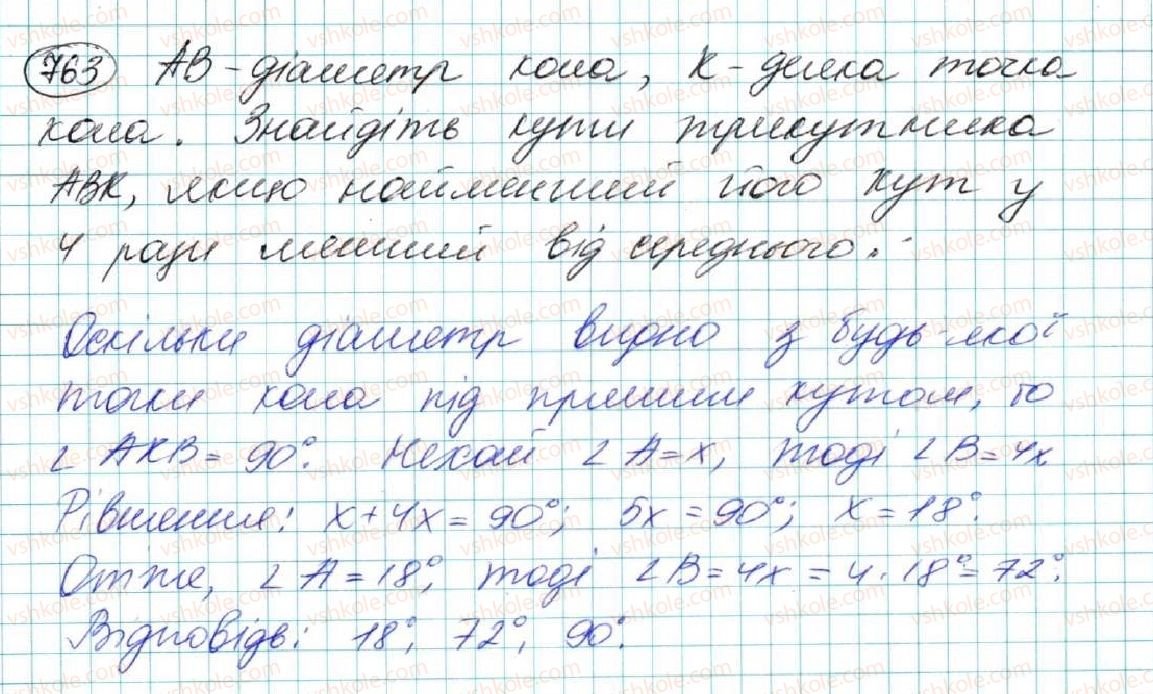 763 АВ - діаметр кола, К - деяка точка
кола. Знайдіть кути трикутника
АВК, якщо найменший його кут у
4 рази менший від середнього.
Оскільки діаметр видно з будь-якої
точки кола під прямим кутом, то
∠ АКВ = 90°. Нехай ∠ А = х, тоді ∠ В = 4х
Рівняння: х + 4х = 90°; 5х = 90°; х = 18°.
Отже, ∠ А = 18°, тоді ∠ В = 4х = 4 · 18° = 72°.
Відповідь: 18°, 72°, 90°.